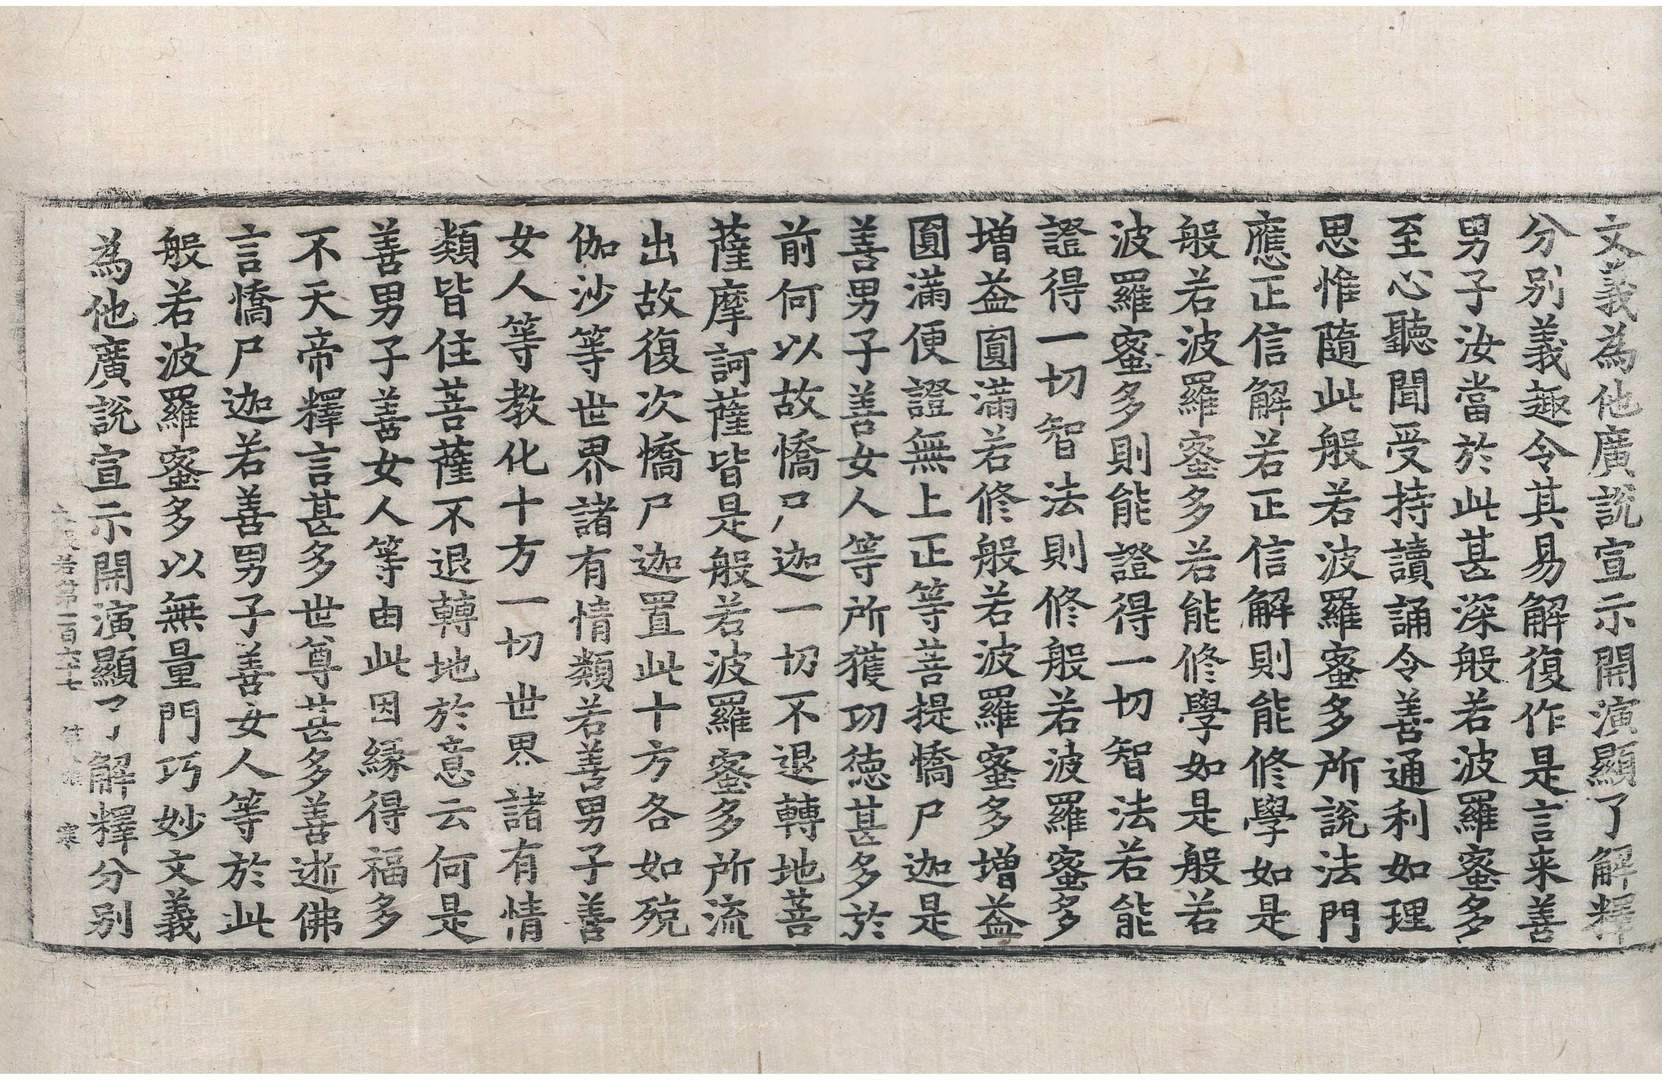 文義為他廣說宣示開演顯了解釋
分別義趣令其易解復作是言来善
男子汝當於此甚深般若波羅蜜多
至心聽聞受持讀誦令善通利如理
思惟隨此般若波羅蜜多所說法門
應正信解若正信解則能修學如是
般若波羅蜜多若能修學如是般若
波羅蜜多則能證得一切智法若能
證得一切智法則修般若波羅蜜多
增益圓滿若修般若波羅蜜多增益
圓滿便證無上正等菩提憍尸迦是
善男子善女人等所獲功德甚多於
前何以故憍尸迦一切不退轉地菩
薩摩訶薩皆是般若波羅蜜多所流
出故復次憍尸迦置此十方各如殑
伽沙等世界諸有情類若善男子善
女人等教化十方一切世界諸有情
類皆住菩薩不退轉地於意云何是
善男子善女人等由此因緣得福多
不天帝釋言甚多世尊甚多善逝佛
言憍尸迦若善男子善女人等於此
般若波羅蜜多以無量門巧妙文義
為他廣說宣示開演顯了解釋分別